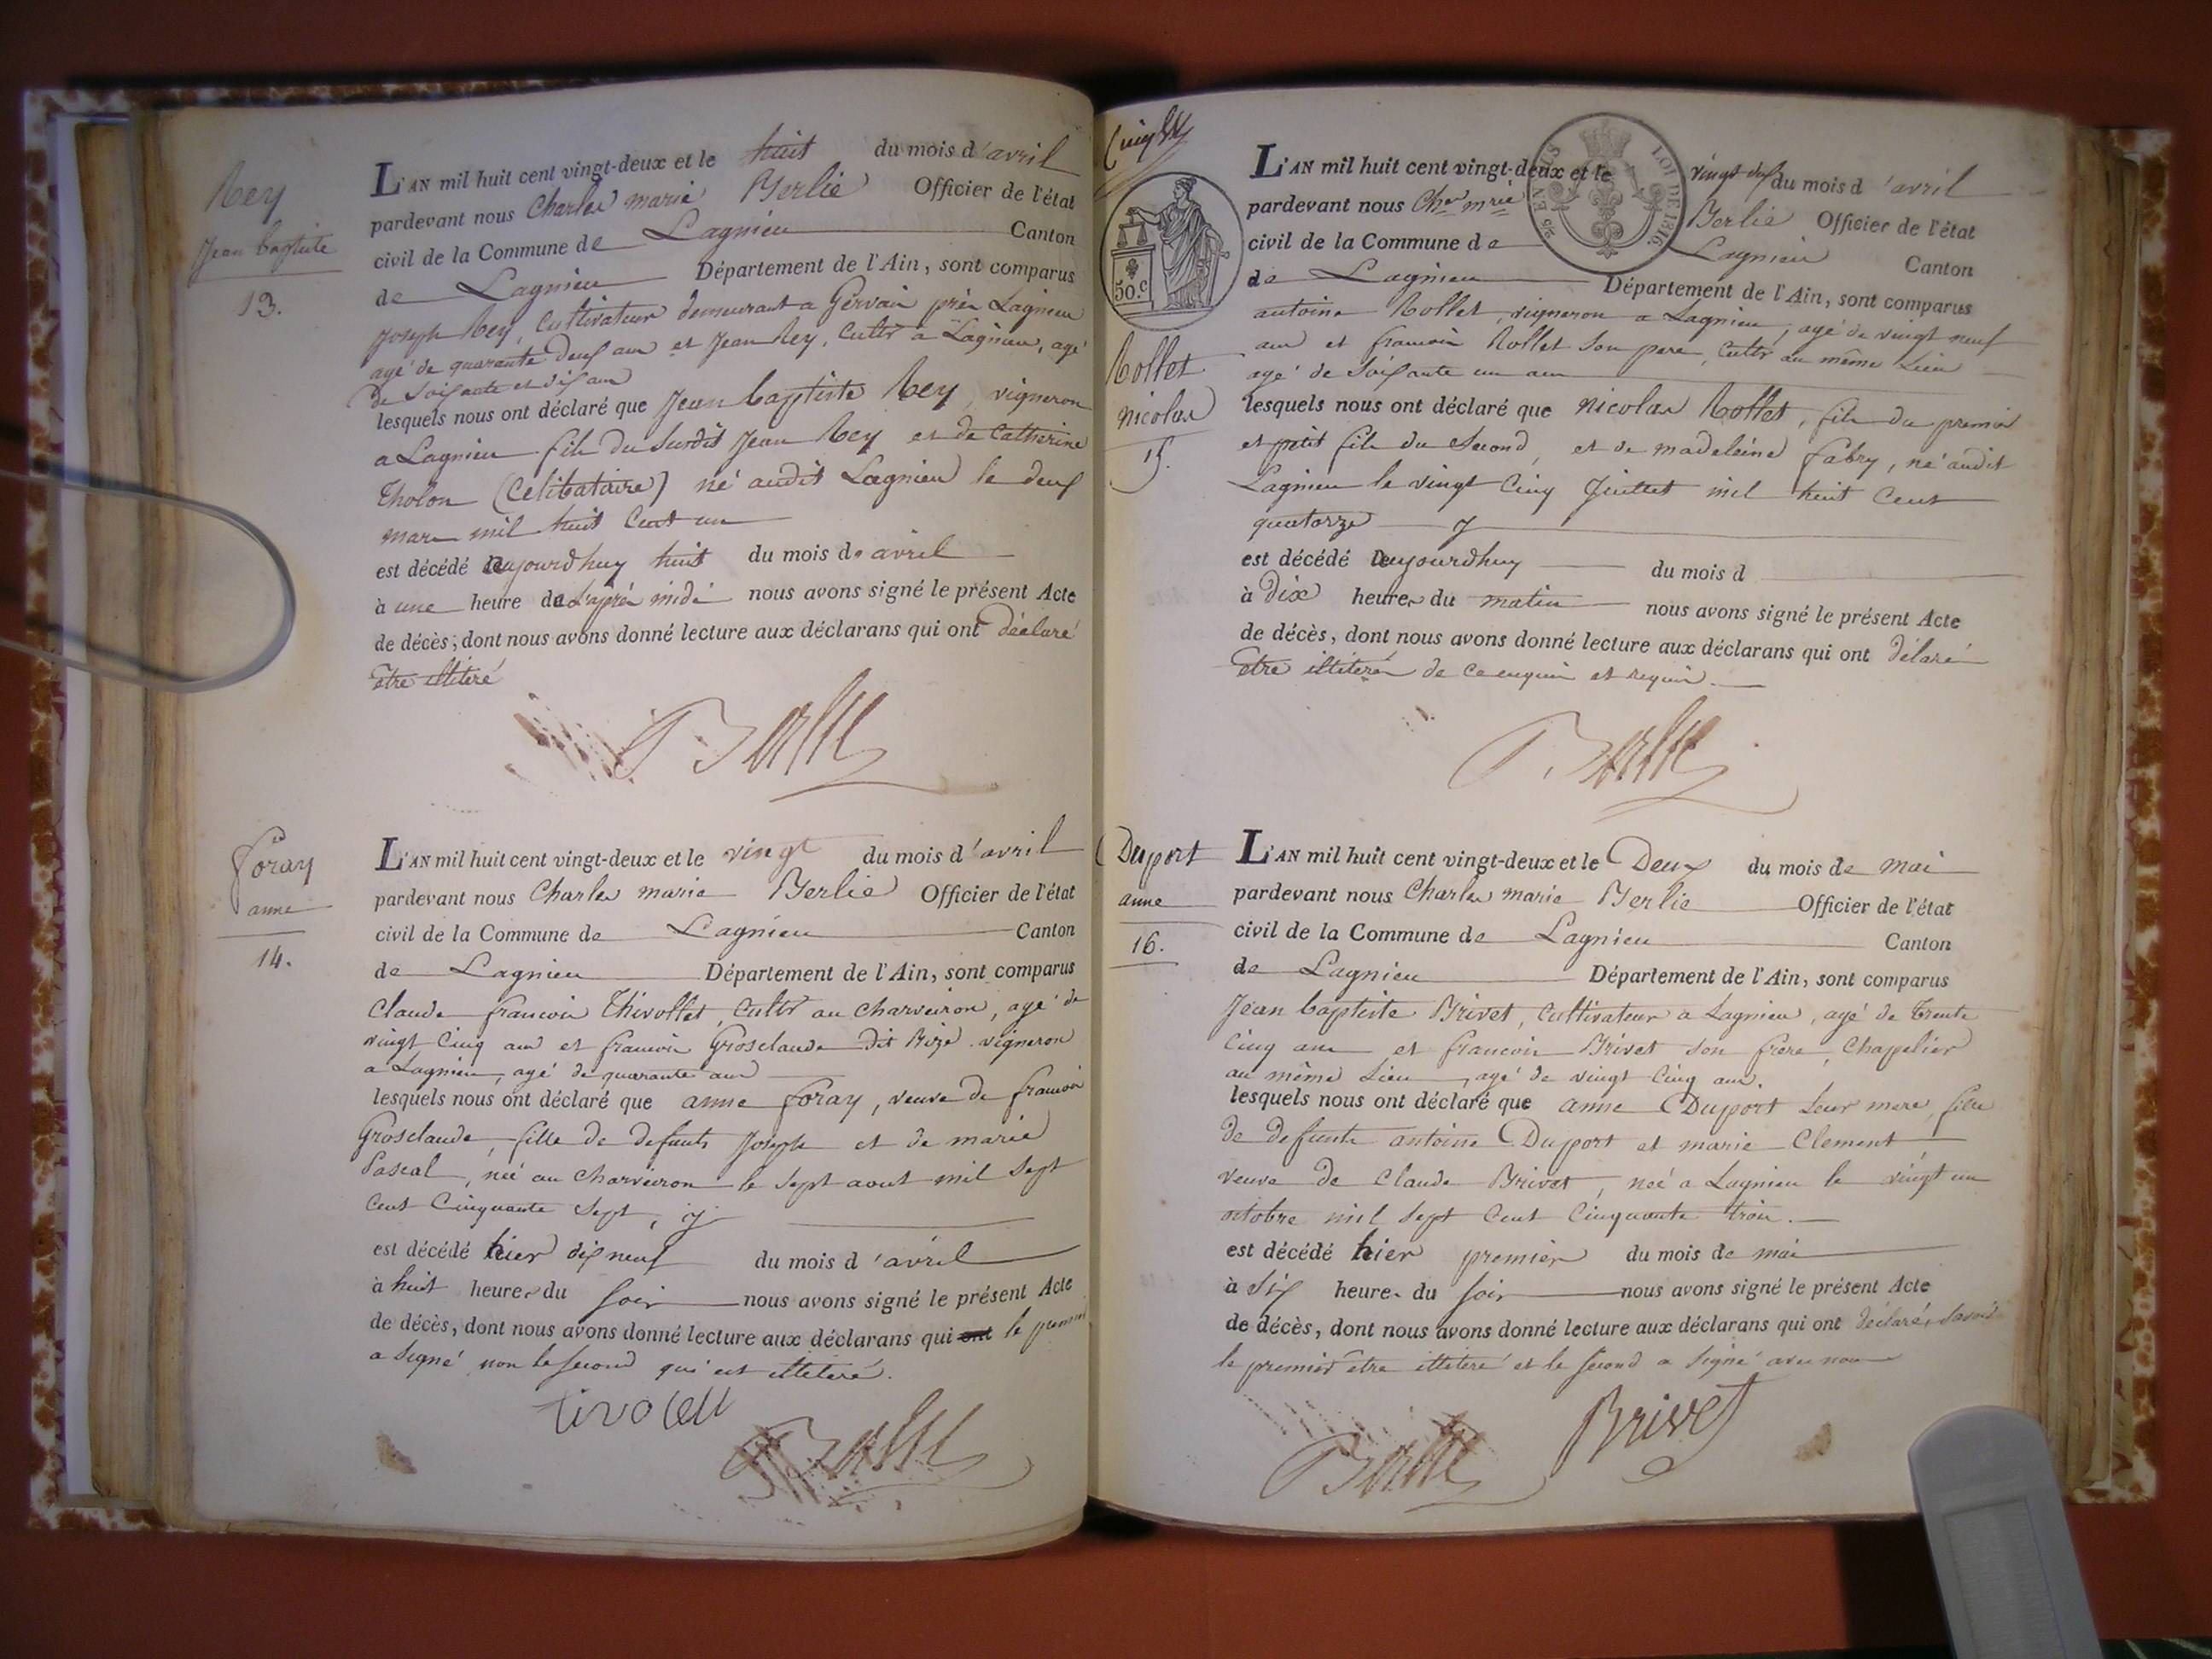 Rey
Jean baptiste
13.
L'AN mil huit cent vingt-deux et le huit du mois d'avril
pardevant nous Charles marie Berlie Officier de l'état
civil de la Commune de Lagnieu Canton
de Lagnieu Département de l'Ain, sont comparus
Joseph Rey, Cultivateur demeurant a Gervais près Lagnieu
agé de quarante deux ans et Jean Rey, Cultr a Lagnieu, agé
de soixante et dix ans
lesquels nous ont déclaré que Jean baptiste Rey, vigneron
a Lagnieu fils du susdit Jean Rey et de Catherine
Tholon (Celibataire) né audit Lagnieu le deux
mars mil huit Cent un
est décédé aujourdhuy huit du mois de avril
à une heure de L'après midi nous avons signé le présent Acte
de décès, dont nous avons donné lecture aux déclarans qui ont déclaré
Etre illiteré
Berlie
foray
anne
14.
L'AN mil huit cent vingt-deux et le vingt du mois d'avril
pardevant nous Charles marie Berlie Officier de l'état
civil de la Commune de Lagnieu Canton
de Lagnieu Département de l'Ain, sont comparus
Claude francois Thivollet, Cultr au Charveiron, agé de
vingt Cinq ans et francois Grosclaude dit Rizé vigneron
a Lagnieu, agé de quarante ans
lesquels nous ont déclaré que anne foray, veuve de francois
Grosclaude, fille de defunts Joseph et de marie
Pascal, neé au Charveiron le sept aout mil sept
Cent Cinquante sept,
est décédé hier dix neuf du mois d'avril
à huit heures du soir nous avons signé le présent Acte
de décès, dont nous avons donné lecture aux déclarans qui ont le premier
a signé non le second qui est illiteré.
tivolett
Berlie
Cinq
50.c
EN SUS
LOI DE 1816.
Rollet
nicolas
15.
L'AN mil huit cent vingt-deux et le vingt deux du mois d'avril
pardevant nous Chles mrie Berlie Officier de l'état
civil de la Commune de Lagnieu Canton
de Lagnieu Département de l'Ain, sont comparus
antoine Rollet vigneron a Lagnieu, agé de vingt neuf
ans et francois Rollet son pere, cultr au même Lieu
agé de soixante un ans
lesquels nous ont déclaré que nicolas Rollet, fils du premier
et petit fils du second, et de madeleine fabry, né audit
Lagnieu le vingt Cinq Juillet mil huit Cent
quatorze
est décédé aujourdhuy du mois d
à dix heures du matin nous avons signé le présent Acte
de décès, dont nous avons donné lecture aux déclarans qui ont délaré
Etre illiterés de ce enquis et requis.
Berlie
Duport
anne
16.
L'AN mil huit cent vingt-deux et le Deux du mois de mai
pardevant nous Charles marie Berlie Officier de l'état
civil de la Commune de Lagnieu Canton
de Lagnieu Département de l'Ain, sont comparus
Jean baptiste Brivet, Cultivateur a Lagnieu, agé de Trente
Cinq ans et francois Brivet son frere, Chapelier
au même Lieu, agé de vingt Cinq ans.
lesquels nous ont déclaré que anne Duport Leur mere, fille
de defunts antoine Duport et marie Clement
veuve de Claude Brivet, neé a Lagnieu le vingt un
octobre mil sept Cent Cinquante trois.
est décédé hier premier du mois de mai
à six heures du soir nous avons signé le présent Acte
de décès, dont nous avons donné lecture aux déclarans qui ont déclaré, savoir
le premier etre illiteré et le second a signé avec nous
Berlie
Brivet